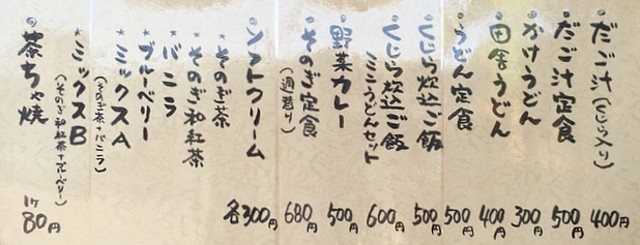 だご汁(くじら入り) 400円
だご汁定食 500円
かけうどん 300円
田舎うどん 400円
うどん定食 500円
くじら炊込ご飯 500円
くじら炊込ご飯
ミニうどんセット 600円
野菜カレー 500円
そのぎ定食(週替り) 680円
ソフトクリーム 各300円
*そのぎ茶
*そのぎ和紅茶
*バニラ
*ブルーベリー
*ミックスA
(そのぎ茶+バニラ)
*ミックスB
(そのぎ和紅茶+ブルーベリー)
茶ちゃ焼 1ケ80円